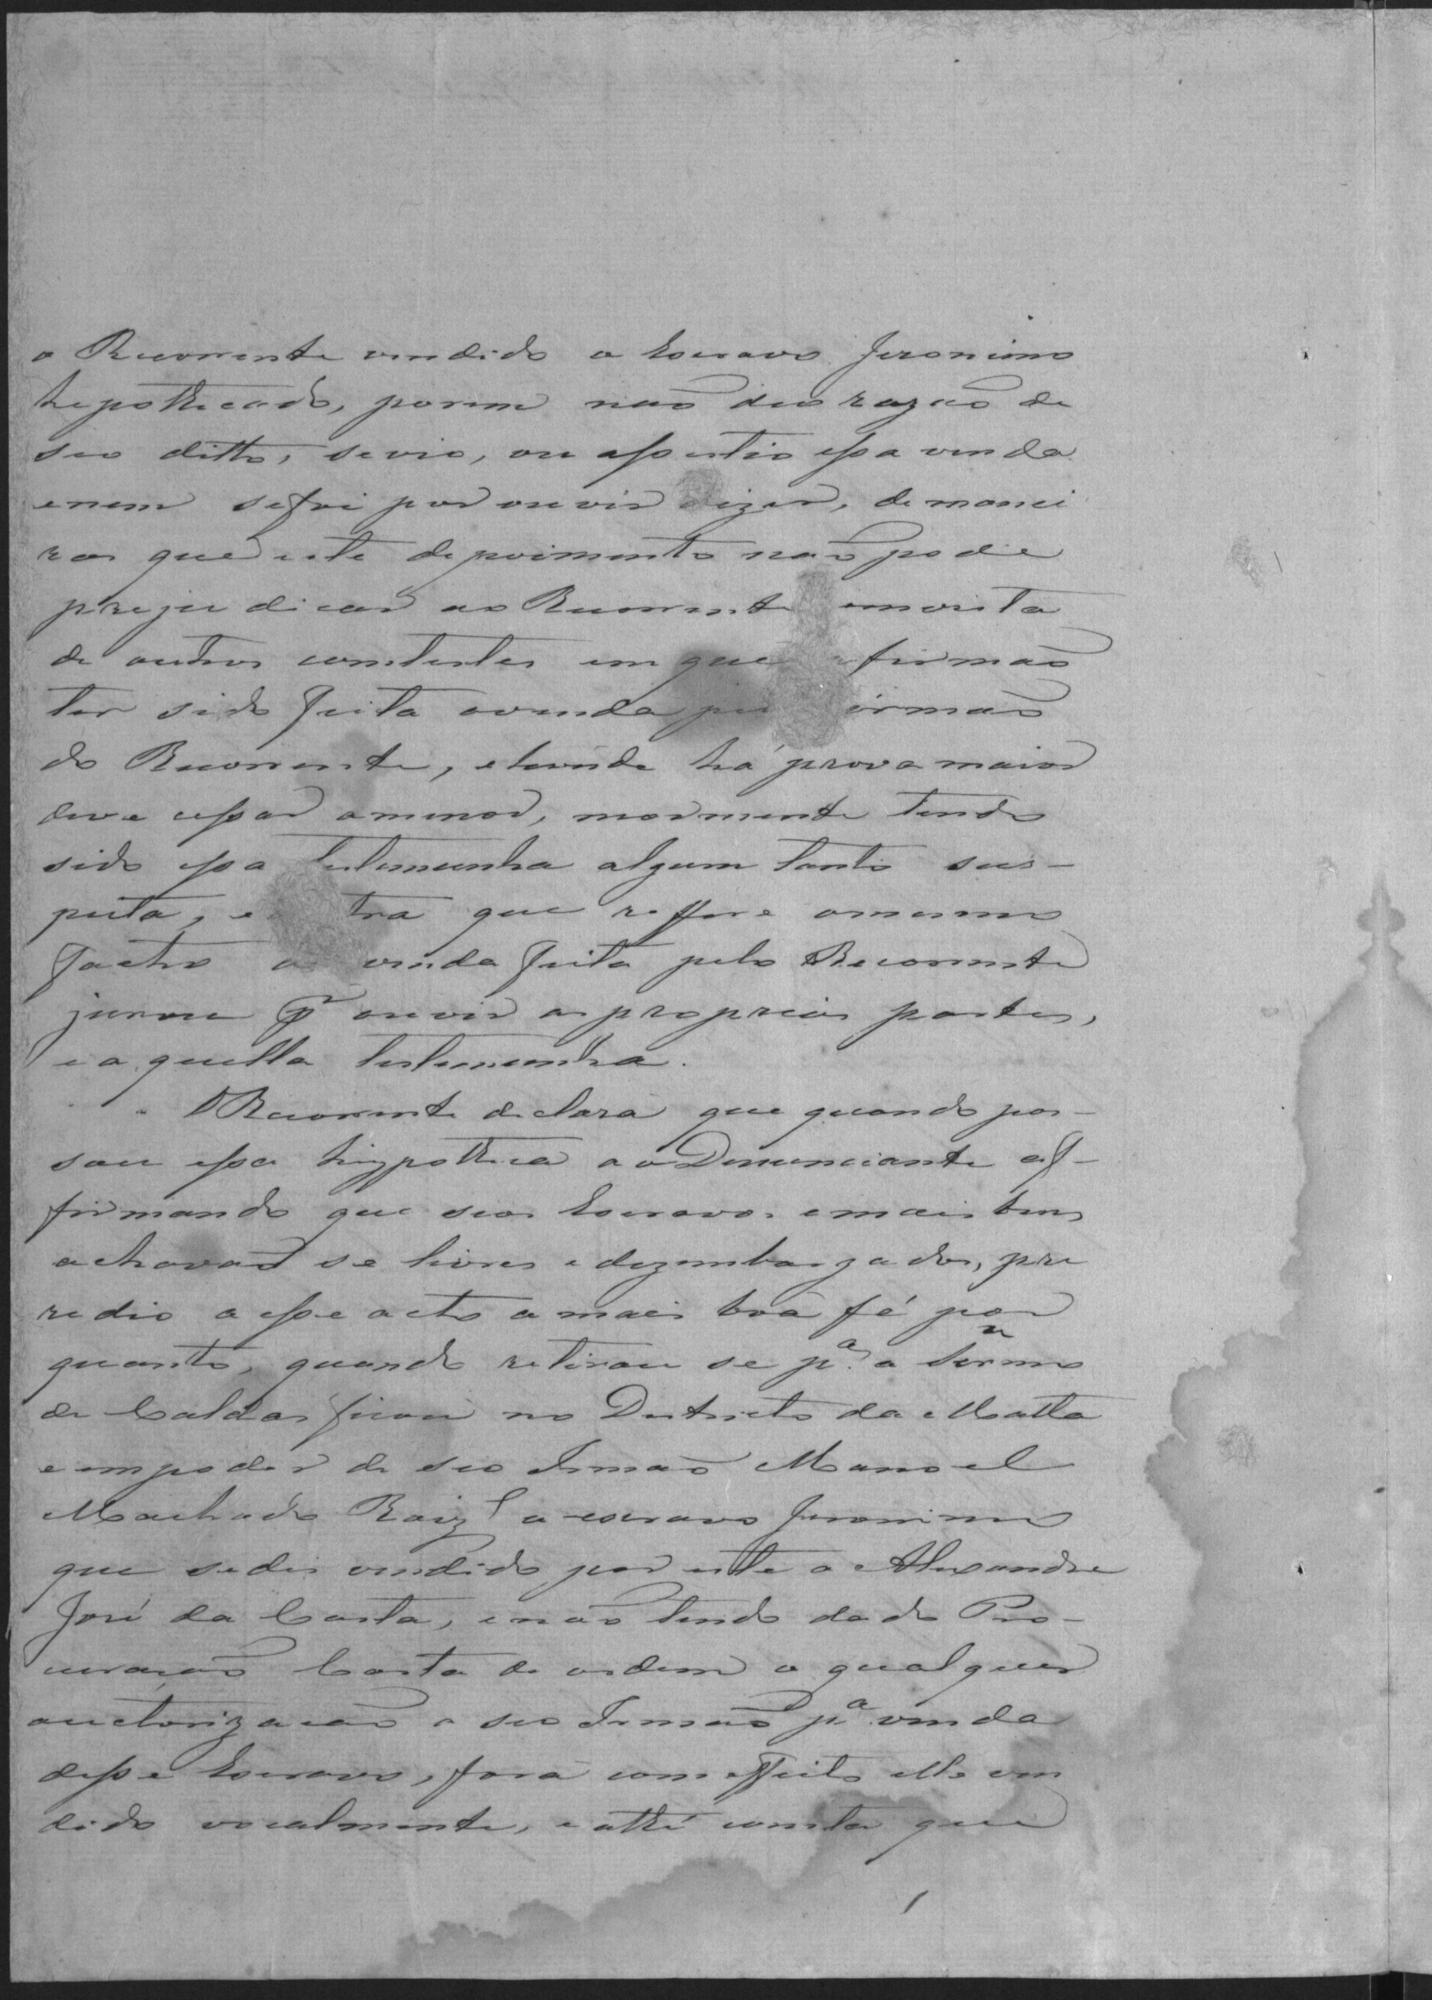 o Recorrente vendido o Escravo Jeronimo
hepothecado, porem naõ deo razaõ de
seo ditto, se vio, ou assestio essa venda
e nem se foi por ouvir dizer, de manei
ra que este depoimento naõ pode
prejudicar ao Recorrente em vista
de outros contestes em que afirmaõ
ter sido feita a venda pelo irmaõ
do Recorrente, e havendo há prova maior
deve cessar a menor, mormente tendo
sido essa testemunha algum tanto sus-
peita, e outra que reffere o mesmo
facto da venda feita pelo Recorrente
jurou pr ouvir as proprias partes,
e a quella testemunha.
O Recorrente declara que quando pas-
sou essa hyppotheca ao Denunciante af-
firmando que seos Escravos e mais bens
achavaõ se livres e dezembargados, pre
zedio a esse acto a mais boa fé por
quanto, quando retirou se pª o Termo
de Caldas ficou no Destricto da Matta
em poder de seo Irmaõ Manoel
Machado Roiz' o escravo Jeronimo
que se diz vendido por este a Alexandre
José da Costa, e naõ tendo dado Pro-
curaçaõ Carta de ordem o qualquer
auctorizaçaõ a seo Irmaõ pª venda
desse Escravo, fora com effeito elle ven
dido vocalmente, e athé consta que